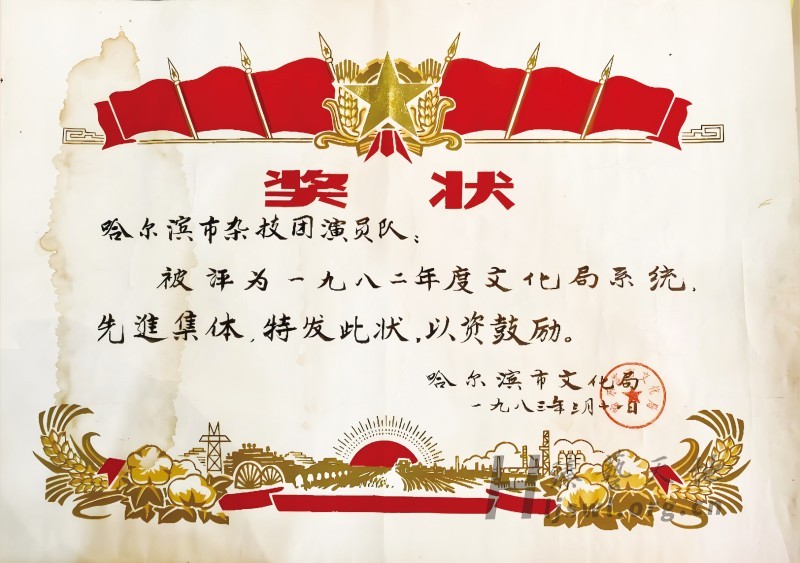 奖 状
哈尔滨市杂技团演员队：
被评为一九八二年度文化局系统，
先進集体，特发此状，以资鼓励。
哈尔滨市文化局
一九八三年三月十一日